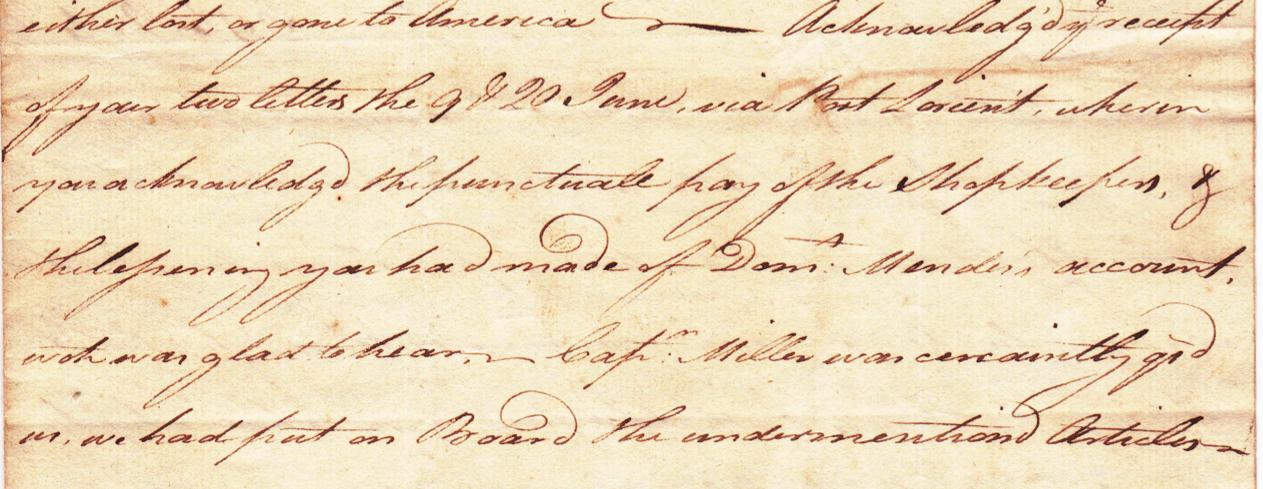 either lost, or gone to America — Acknowledg'd yr receipt
of your two letters the 9 & 20 June, via Port Lorient, wherin
you acknowledgd the punctuale pay of the Shopkeepers, &
the lessening you had made of Domk: Mendes's account,
wch was glad to hear, — Capn: Miller was cercaintly
us, we had put on Board the undermentiond Articles —